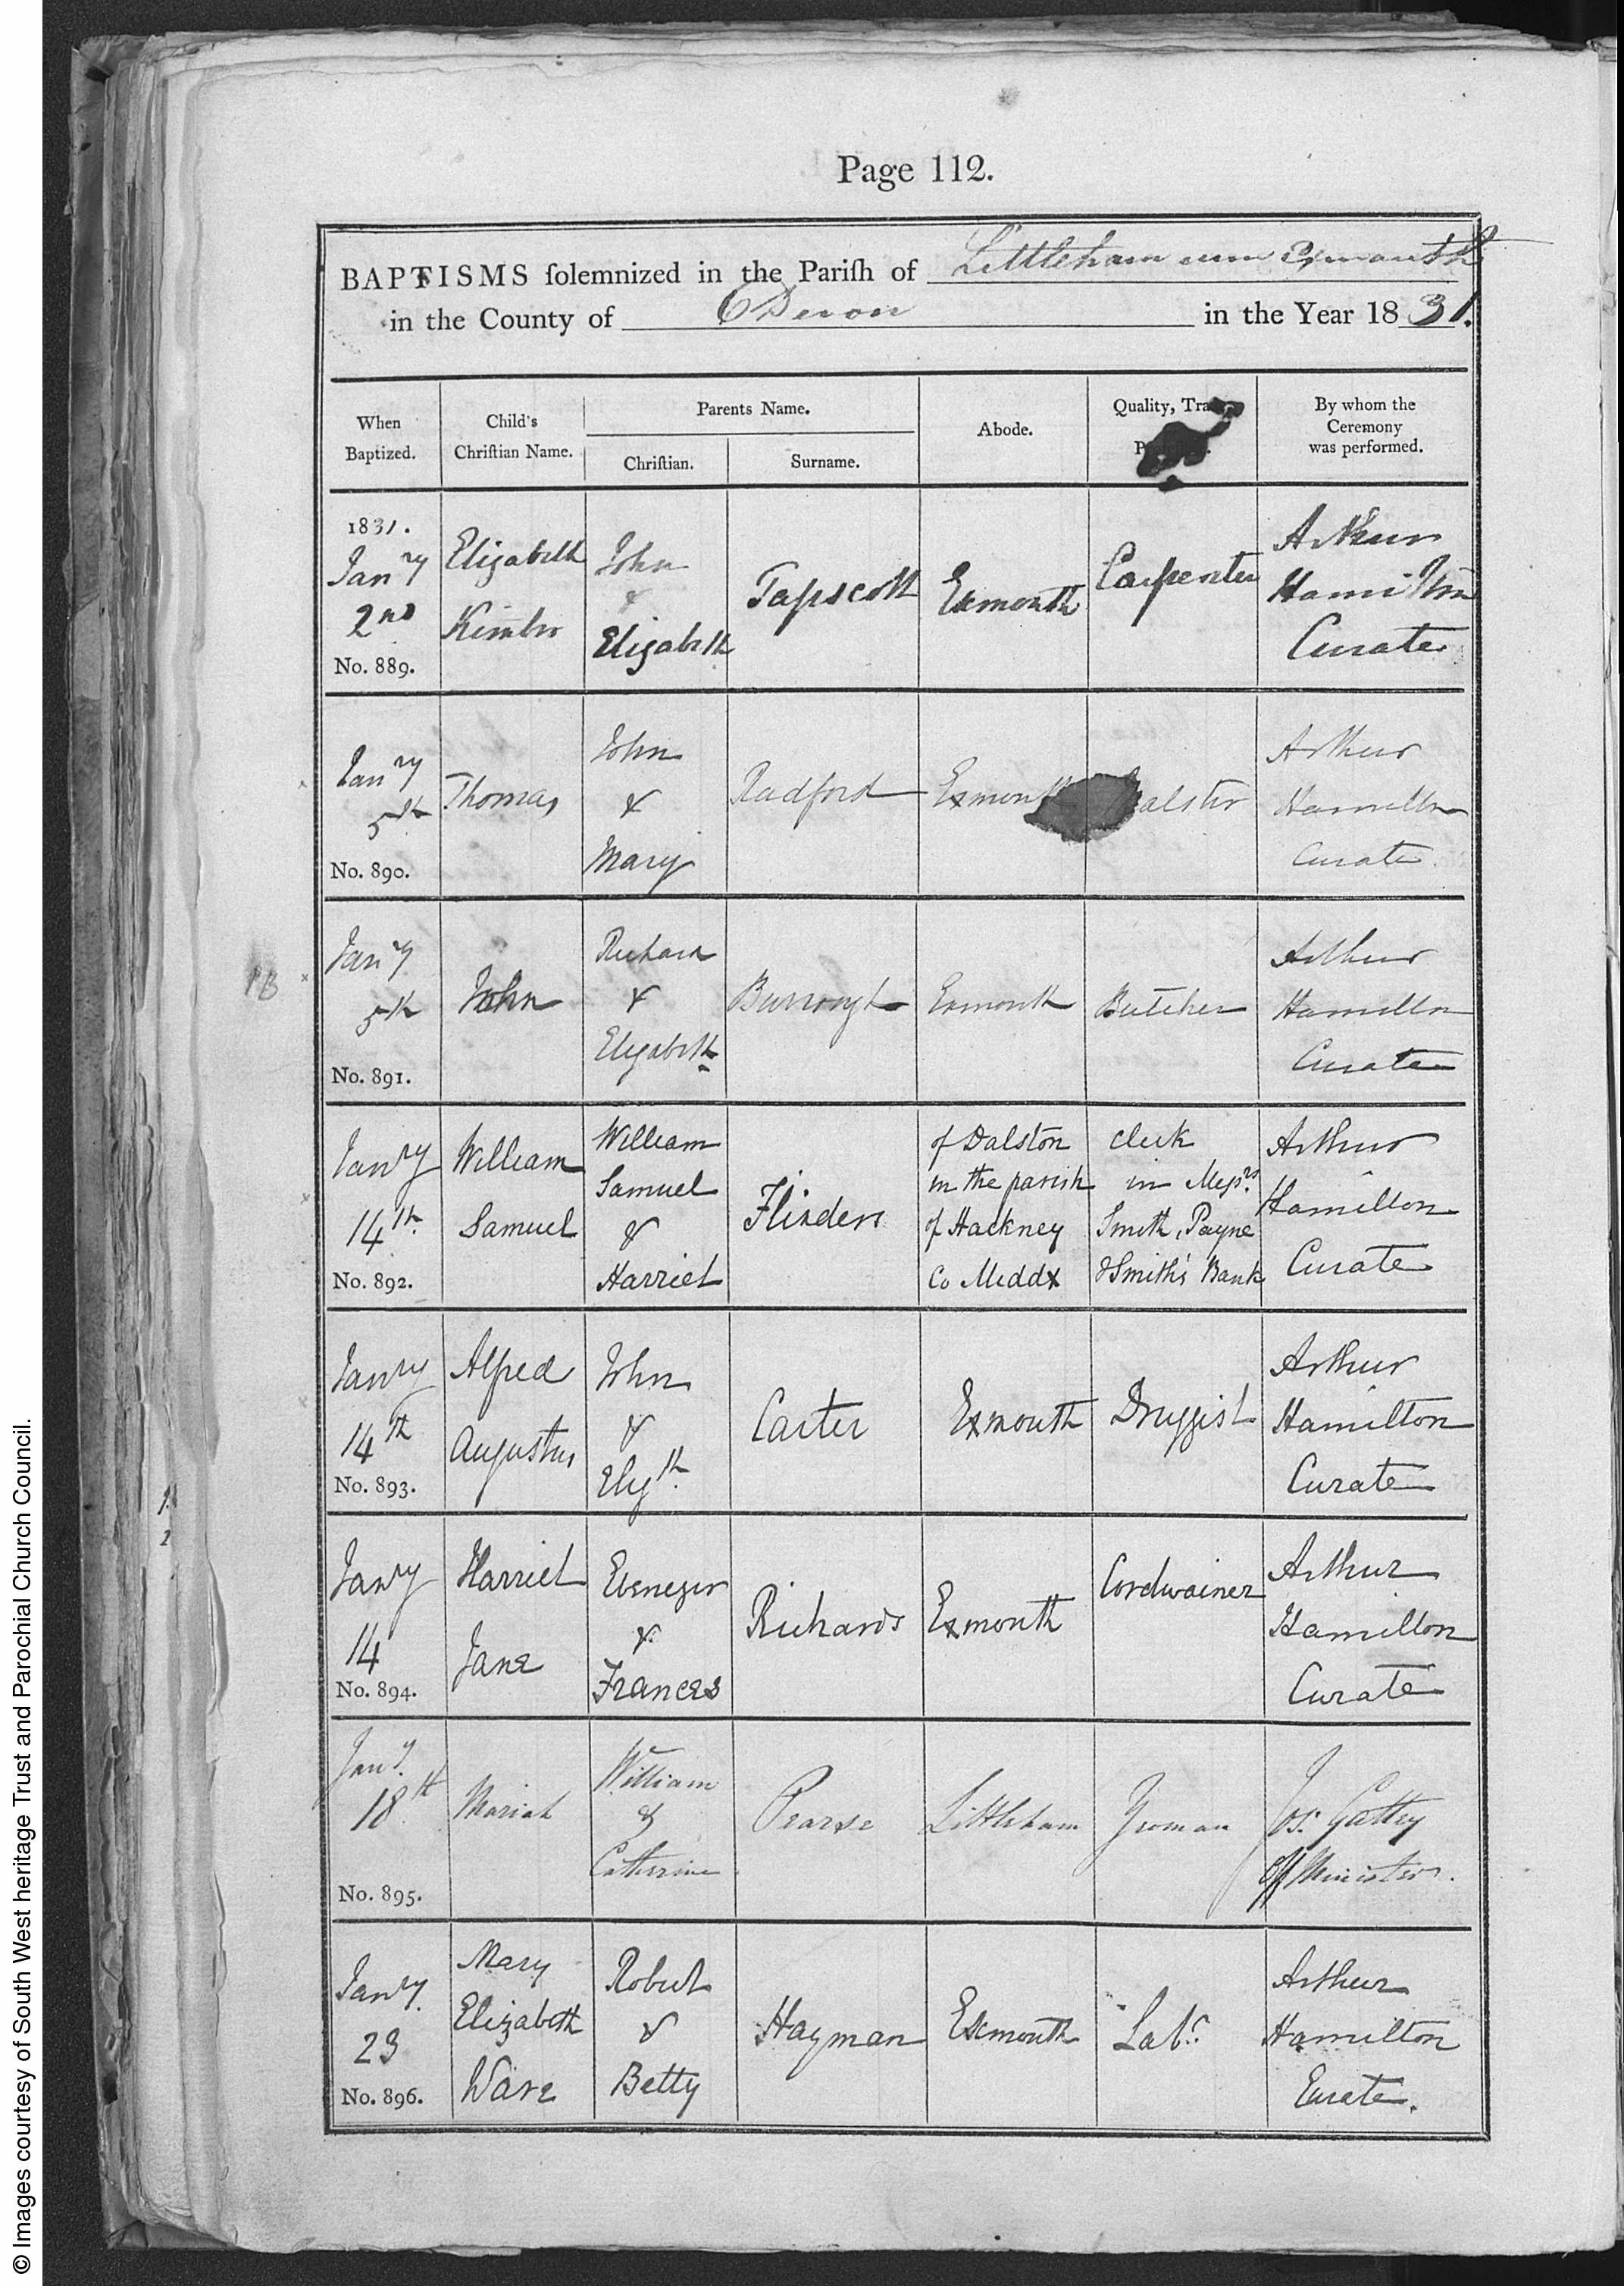 Page 112.
BAPTISMS solemnized in the Parish of Littleham cum Exmouth
in the County of Devon in the Year 1831.
When
Baptized.
Child's
Christian Name.
Parents Name.
Christian.
Surname.
Abode.
Quality, Trade
By whom the
Ceremony
was performed.
1831.
Janry
2nd
No. 889.
Elizabeth
Kimber
John
&
Elizabeth
Tapscott
Exmouth
Carpenter
Arthur
Hamilton
Curate
Janry
5th
No. 890.
Thomas
John
&
Mary
Radford
Exmouth
Arthur
Hamilton
Curate.
Janry
5th
No. 891.
John
Richard
&
Elizabeth
Burrough
Exmouth
Butcher
Arthur
Hamilton
Curate
Janry
14th
No. 892.
William
Samuel
William
Samuel
&
Harriet
Flinders
of Dalston
in the parish
of Hackney
Co Middx
clerk
in Messrs
Smith, Payne
& Smith's Bank
Arthur
Hamilton
Curate
Janry
14th
No. 893.
Alfred
Augustus
John
&
Elizth
Carter
Exmouth
Druggist
Arthur
Hamilton
Curate
Janry
14
No. 894.
Harriet
Jane
Ebenezer
&
Frances
Richards
Exmouth
Cordwainer
Arthur
Hamilton
Curate
Jany.
18th
No. 895.
Mariah
William
&
Catherine
Pearse
Littleham
Yeoman
Jos: Gattey
Off Minister.
Janry.
23
No. 896.
Mary
Elizabeth
Ware
Robert
&
Betty
Hayman
Exmouth
Labr.
Arthur
Hamilton
Curate.
PB
© Images courtesy of South West heritage Trust and Parochial Church Council.